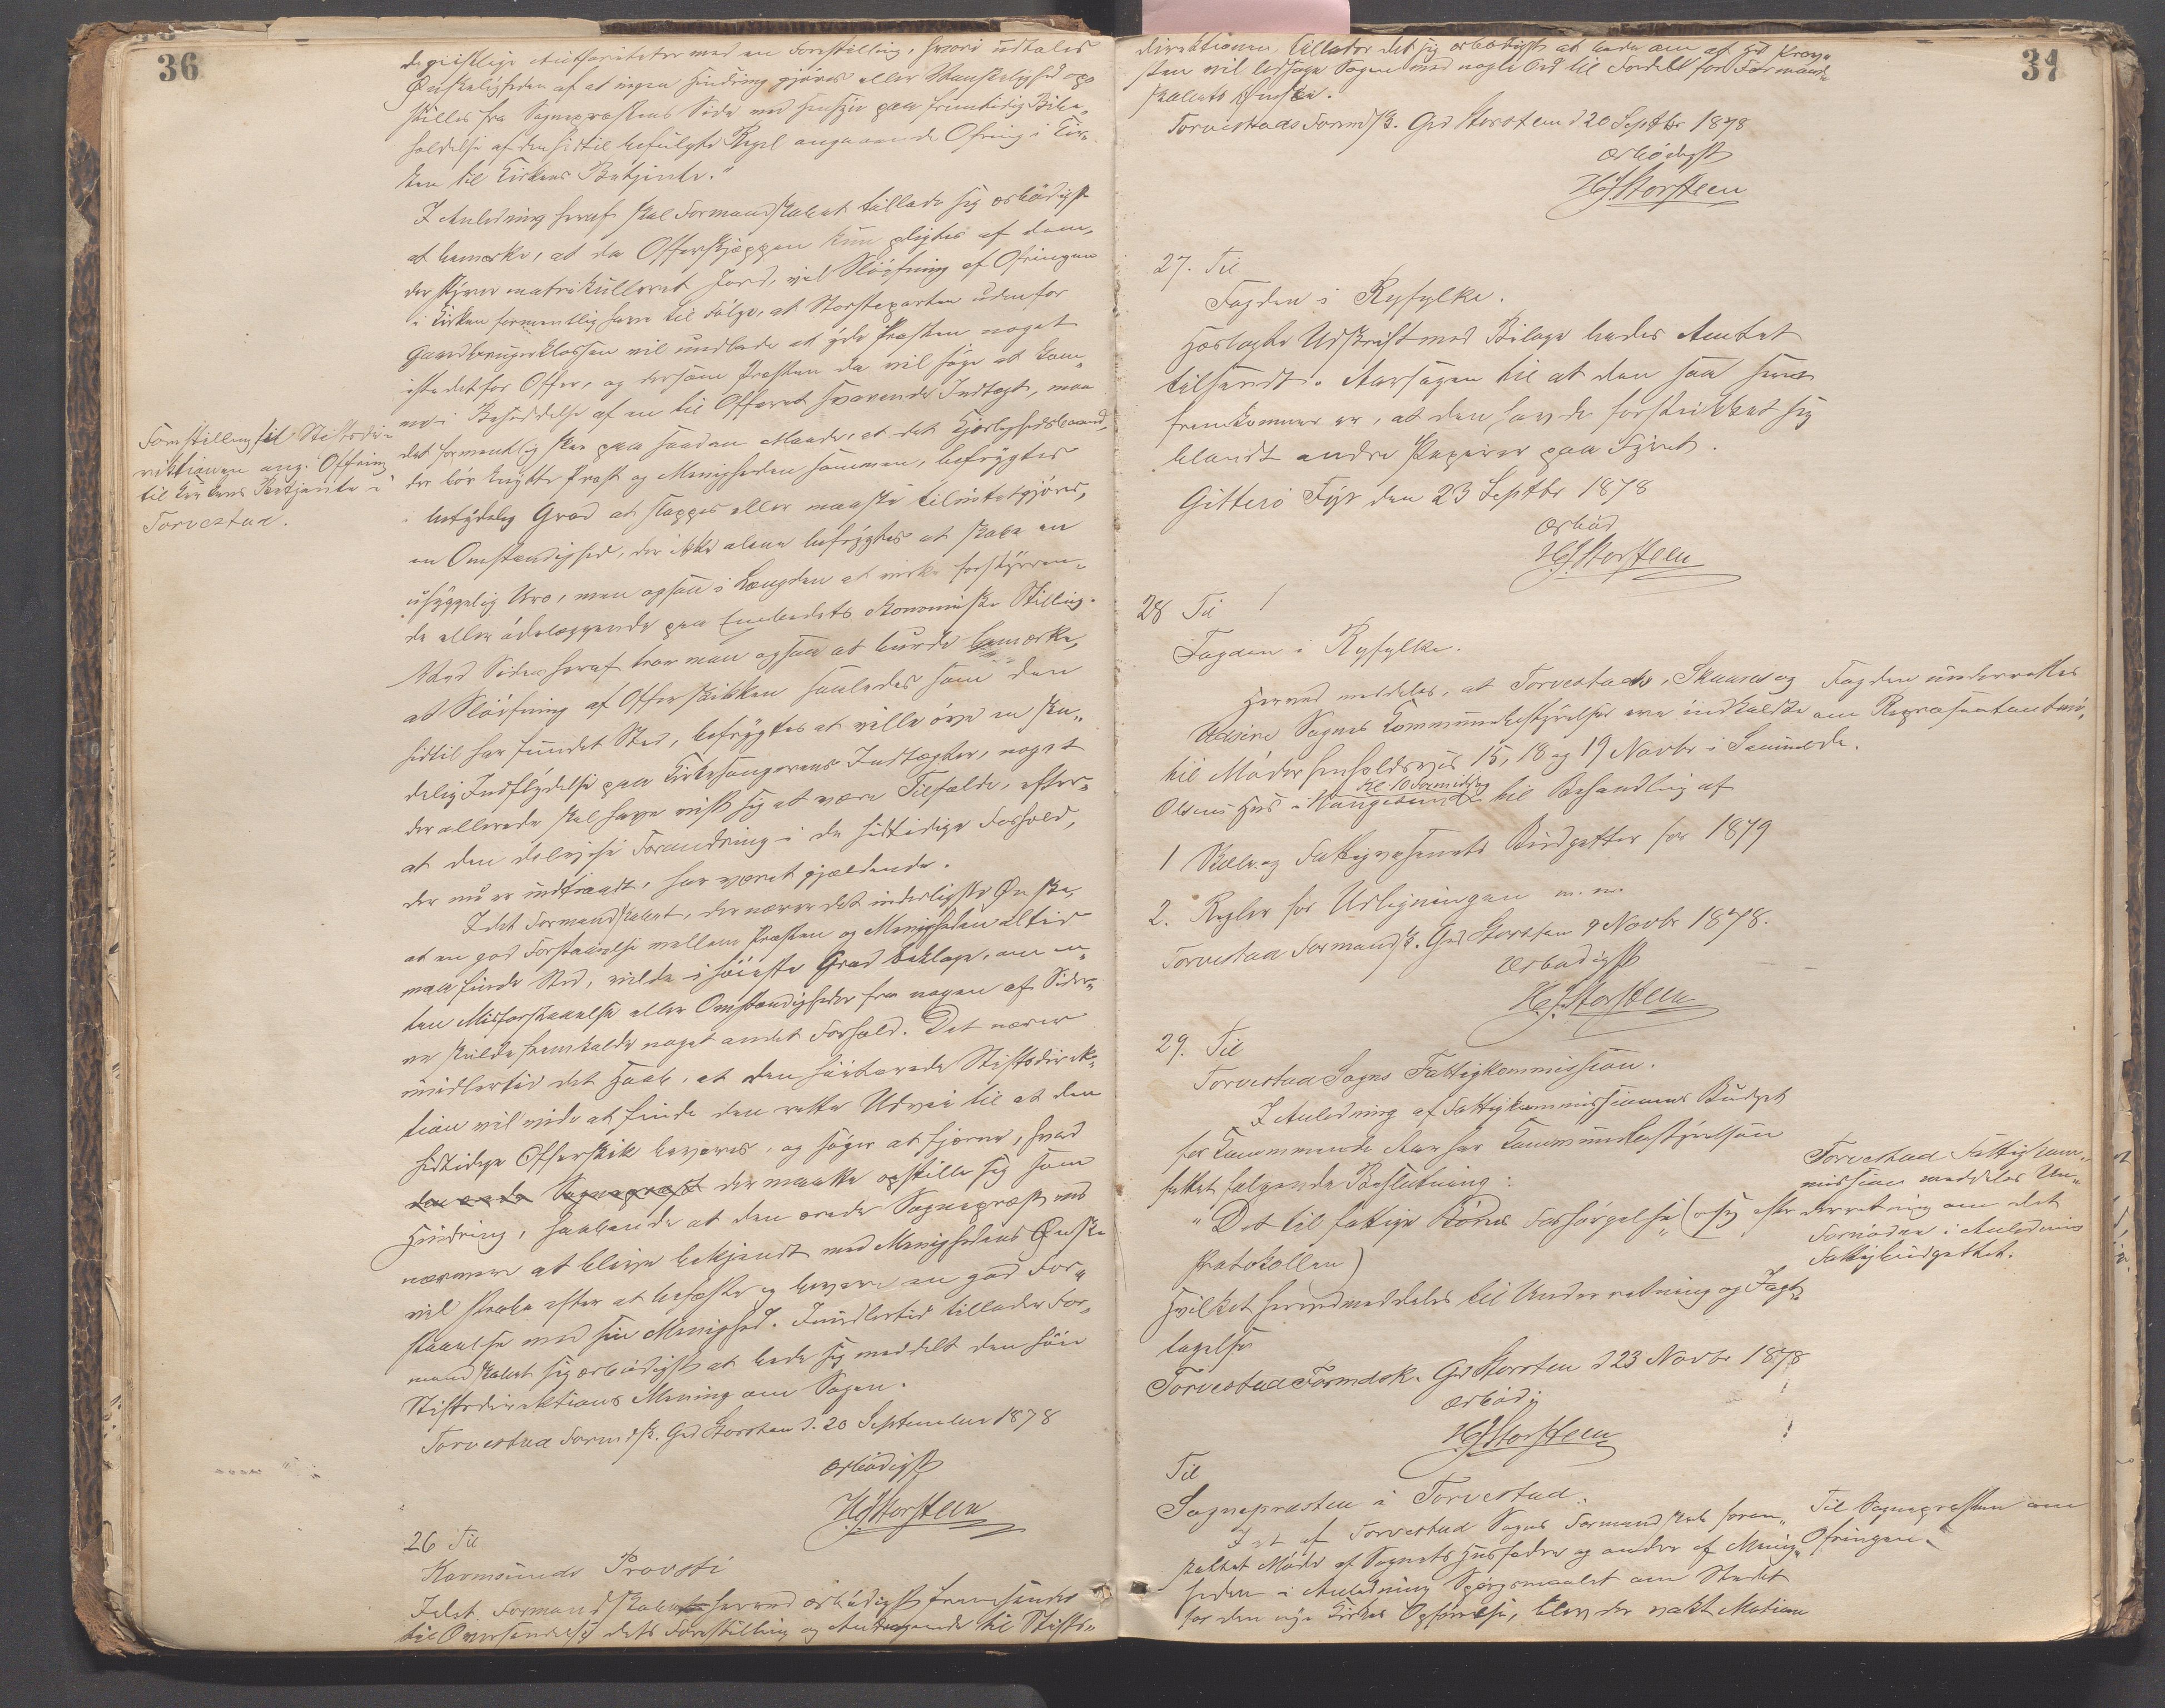 36
de geistlige Autoriteter med en Forestilling, hvori udtales
Ønskeligheden af at ingen Hindring gjøres eller Vanskelighed op-
stilles fra Sognepræstens Side med Hensyn paa fremtidig Bibe-
holdelse af den hidtil befulgte Regel angaaende Ofring i Kir-
ken til Kirkens Betjente."
I Anledning heraf skal Formandskabet tillade sig ærbødigst
at bemærke, at da Offerskjæppen kun pligtes af dem,
der styrer matrikulleret Jord, vil Sløifning af Ofringen
i Kirken formentlig have til Følge, at Storsteparten udenfor
Gaardbrugerklassen vil undlade at yde Præsten noget
istedetfor Offer, og dersom Præsten da vil søge at kom-
me i Besiddelse af en til Offeret svarende Indtægt, maa
det formentlig ske paa saadan Maade, at det Kjærlighedsbaand,
der bør knytte Præst og Menigheden sammen, befrygtes
i betydelig Grad at slappes eller maaske tilintetgjøres,
en Omstændighed, der ikke alene befrygtes at skabe en
uhyggelig Uro, men ogsaa i Længden at virke forstyrren-
de eller ødelæggende paa Embedets økonomiske Stilling.
Ved Siden heraf tror man ogsaa at burde bemærke,
at Sløifning af Offerskikken saaledes som den
hidtil har fundet Sted, befrygtes at ville øve en ska-
delig Indflydelse paa Kirkesangerens Indtægter, noget
der allerede skal have vist sig at være Tilfælde, efter-
at den delvise Forandring i de hidtidige Forhold,
der nu er indtraadt, har været gjældende.
Idet Formandskabet, der nærer det inderligste Ønske,
at en god Forstaaelse mellem Præsten og Menigheden altid
maa finde Sted, vilde i høieste Grad beklage, om en-
ten Misforstaaelse eller Omstændigheder fra nogen af Sider-
ne skulde fremkalde noget andet Forhold. Det nærer
imidlertid det Haab, at den høibaarede Stiftsdirek-
tion vil vide at finde den rette Udvei til at den
hidtidige Offerskik bevares, og søger at fjærne, hvad
den ærede Sognepræst der maatte opstille sig som
Hindring, haabende at den ærede Sognepræst ved
nærmere at blive bekjendt med Menighedens Ønske
vil stræbe efter at befæste og bevare en god For-
staaelse med sin Menighed. Imidlertid tillader For-
mandskabet sig ærbødigst at bede sig meddelt den høie
Stiftsdirektions Mening om Sagen.
Torvestad Formdsk. Grd Storsten d. 20 September 1878
ærbødigst
H J Storsteen
Forestilling til Stiftsdi-
rektionen ang. Offring
til Kirkens Betjente i
Torvestad.
26 Til
Karmsunds Provsti
Idet Formandskabet herved ærbødigst fremsender
til Oversendelse dets Forestilling og Andragende til Stifts-
31
direktionen, tillader det sig ærbødigst at bede om at Hr Prov-
sten vil ledsage Sagen med nogle Ord til Fordel for Formand-
skabets Ønske.
Torvestads Formdsk. Grd Storsten d 20 Septbr 1878
ærbødigst
H J Storsteen
27. Til
Fogden i Ryfylke.
Hoslagte Udskrift med Bilage bedes Amtet
tilsendt. Aarsagen til at den saa sent
fremkommer er, at den havde forstukket sig
blandt andre Papirer paa Fyret.
Gitterø Fyr den 23 Septbr 1878
ærbød
H J Storsteen
28 Til
Fogden i Ryfylke.
Herved meddeles, at Torvestads, Skaares og
Utsire Sognes Kommunebestyrelser ere indkaldte
til Møder henholdsvis 15, 18 og 19 Novbr i
Kl. 10 Formiddag
Olsens Hus i Haugesund til Behandling af
1 Skole og Fattigvæsenets Budgetter for 1879
2. Regler for Udligningen m. m.
Torvestad Formandsk. Grd Storsten 9 Novbr 1878.
ærbødigst
H. J. Storsteen
Fogden underrettes
om Repræsentantmø-
de.
29. Til
Torvestad Sogns Fattigkommission.
I Anledning af Fattigkommissionens Budget
for kommende Aar har Kommunebestyrelsen
fattet følgende Beslutning:
"Det til fattige Børns Forsørgelse" (osv efter
Protokollen)
Hvilket herved meddeles til Underretning og Iagt-
tagelse
Torvestad Formdsk. Grd Storsten d 23 Novbr 1878
ærbødig
H J Storsteen
Torvestad Fattigkom-
mission meddeles Un-
derretning om det
Fornødne i Anledning
Fattigbudgettet.
Til
Sognepræsten i Torvestad.
I et af Torvestad Sogns Formandskab foran-
staltet Møde af Sognets Husfædre og andre af Menig-
heden i Anledning Spørgsmaalet om Stedet
for den nye Kirkes Opførelse, blev der vakt Motion
Til Sognepræsten om
Ofringen.